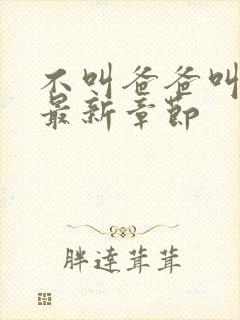 不叫爸爸叫
最新章节
胖達茸茸